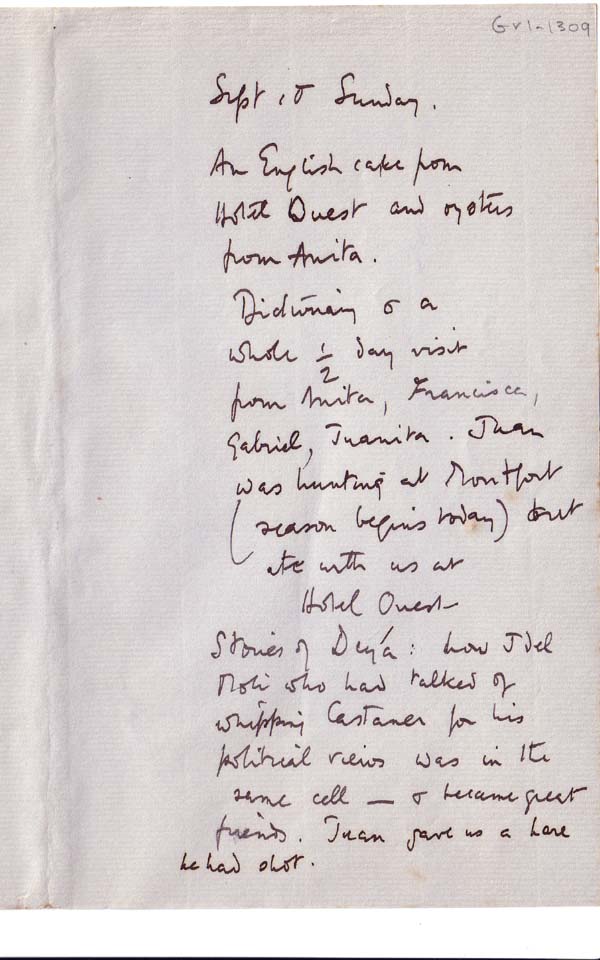 Gv1-1309
Sept 18 Sunday.
An English cake from
Hotel Ouest and oysters
from Anita.
Dictionary & a
whole ½ day visit
from Anita, Francisca,
Gabriel, Juanita. Juan
was hunting at Montfort
(season begins today) but
ate with us at
Hotel Ouest
Stories of Deyá: how J del
Moli who had talked of
whipping Castaner for his
political views was in the
same cell — & became great
friends. Juan gave us a hare
he had shot.